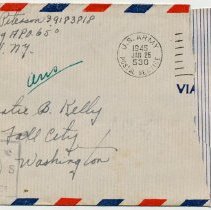 Peterson 39183818
APO 650
N.Y.
ans
U.S. ARMY
1945
JAN 25
530
POSTAL SERVICE
VIA
B. Kelly
Fall City
Washington